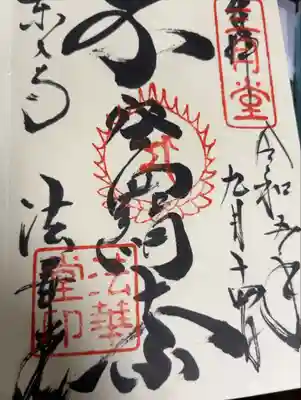 奉拝
令和五年
九月十四日
不空羂索
東大寺
法華堂
法華
堂印